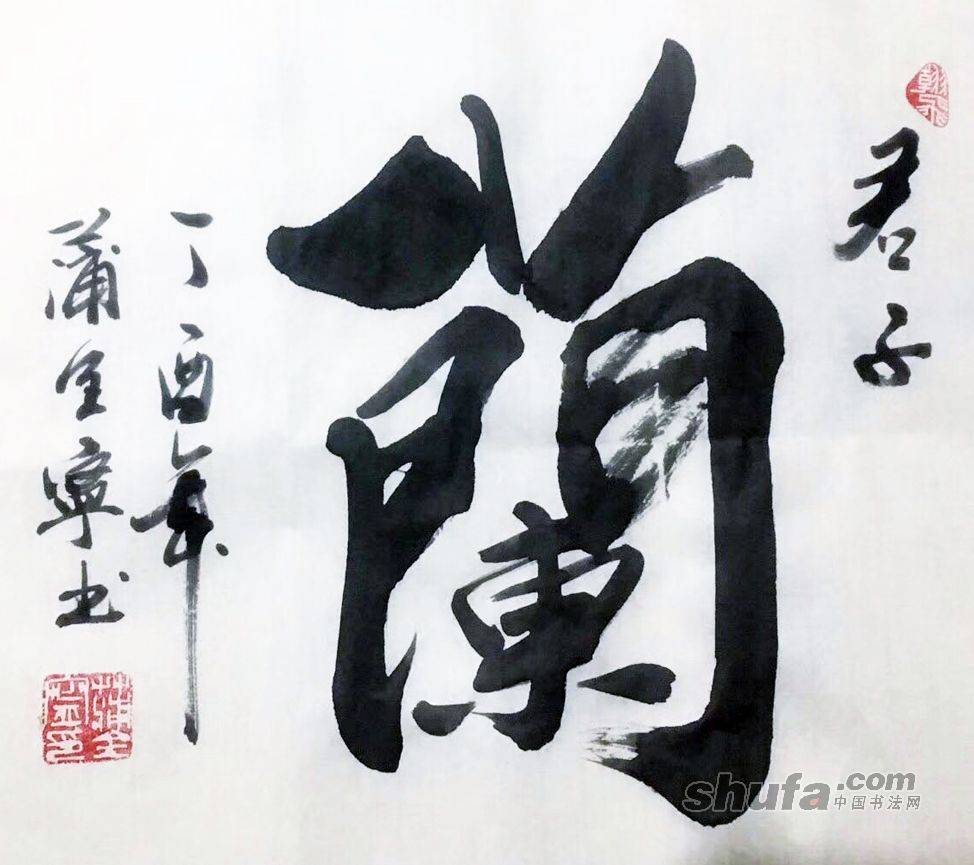 君子
蘭
丁酉年
蒲全寧书
shufa.com
中国书法网